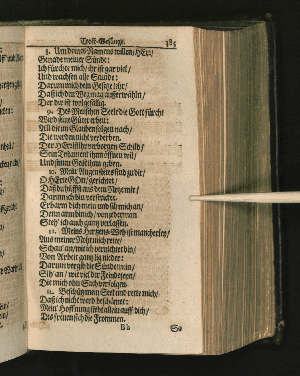 Trost-Gesänge. 385
8. Um deines Namens willen/ HErr/
Genade meiner Sünde:
Ich fürchte mich/ ihr ist gar viel/
Und wachsen alle Stunde:
Darum mich dein Gesetze lehr/
Daß ich den Weg mag auserwählen/
Der dir ist wolgefällig.
9. Des Menschen Seel die Gott fürcht
Wird seine Güter erben:
All die im Glauben folgen nach/
Die werden nicht verderben.
Der HErr ist ihr verborgen Schild/
Sein Testament
Und seinen Geist ihm geben.
10. Mein Augen stets sind zu dir/
O HErre GOtt/ gerichtet/
Daß du hilffst aus dem Netze mir/
Darinn ich bin verstricket.
Erbarm dich mein und sich mich an/
Denn arm bin ich/ von jederman
Steh' ich auch ganz verlassen.
11. Meins Herzens-Weh ist mancherley/
Aus meiner Noht mich rette/
Schau' an/ wie ich vernichtet bin/
Von Arbeit ganz lig nieder:
Darum verzeih die Sünde mein/
Sih' an/ wie viel der Feinde seyn/
Die mich ohn Sach verfolgen.
12. Beschütz mein Seel und rette mich/
Daß ich nicht werd beschämet:
Mein' Hoffnung steht allein auff dich/
Des freuen sich die Frommen.
Bb So